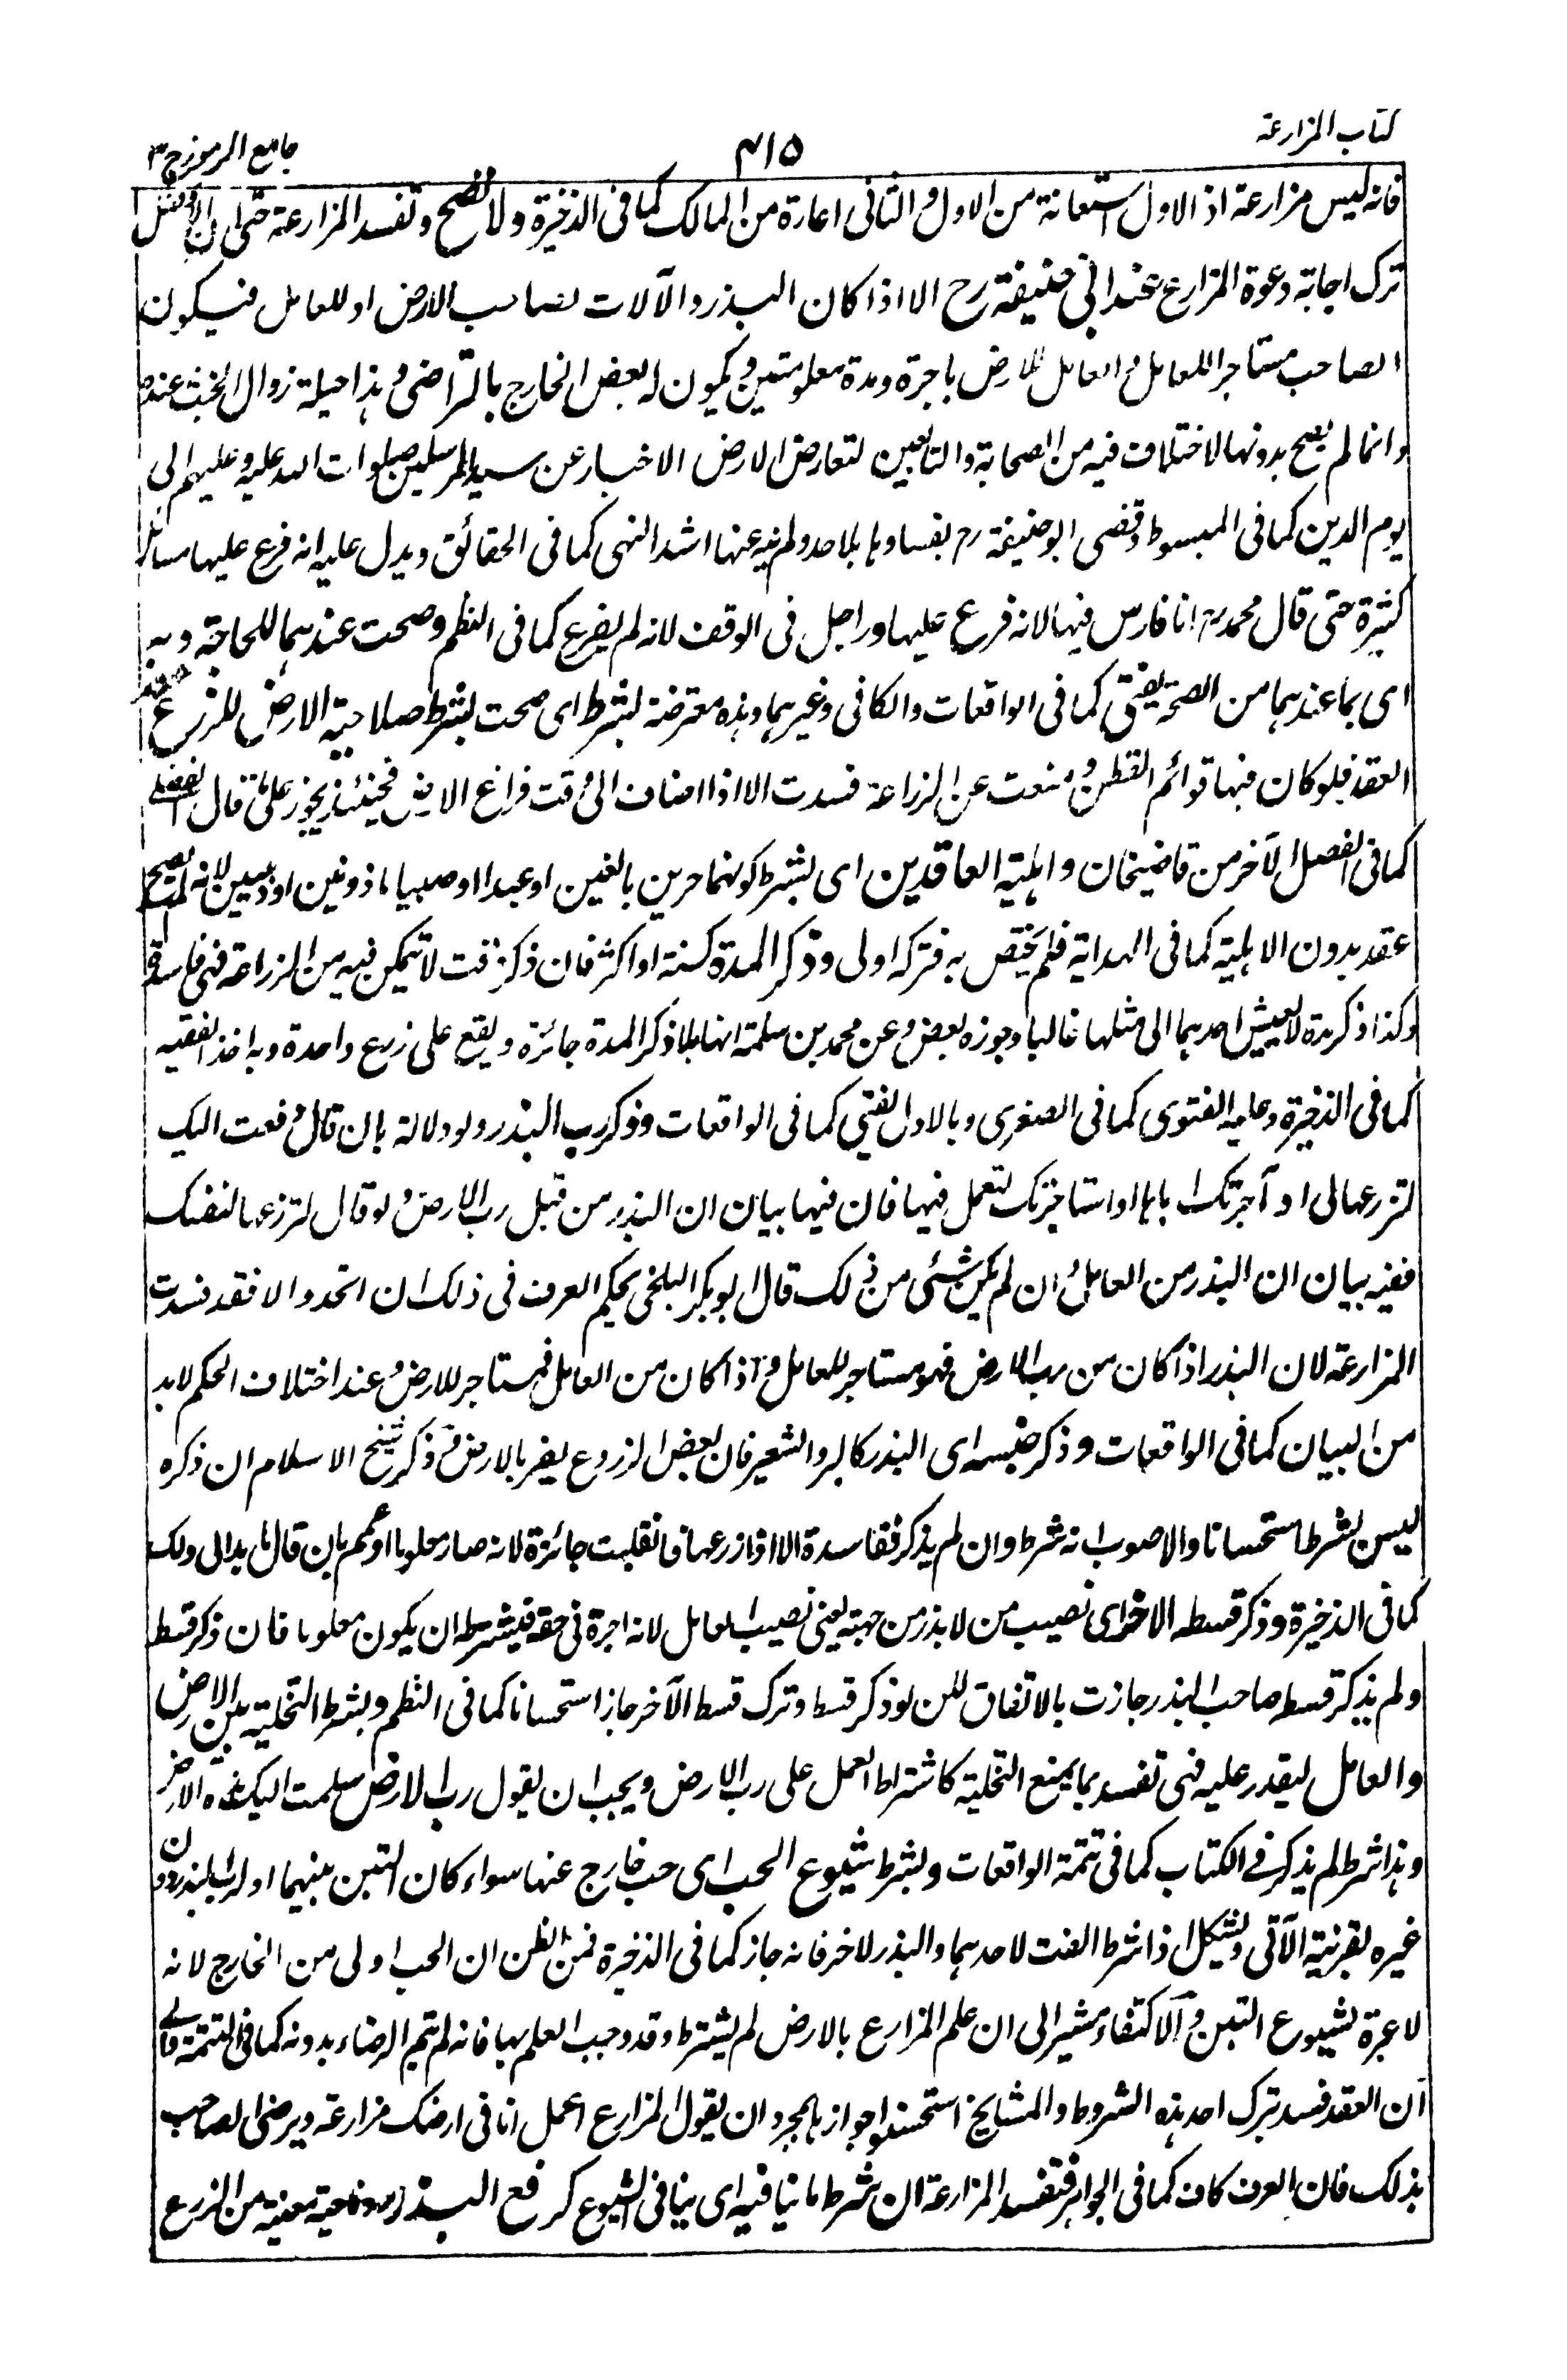 كتاب المزارعة
۴۱۵
جامع الرموز ج ۳
فانه ليس مزارعة اذ الاول استعانة من الاول والثانى اعارة من المالك كما فى الذخيرة ولا تصح وتفسد المزارعة حتى ان الافضل
ترك اجابة دعوة المزارع عند ابى حنيفة رح الا اذا كان البذر والآلات لصاحب الارض او للعامل فيكون
الصاحب مستاجرا للعامل والعامل للارض باجرة ومدة معلومتين ويكون له بعض الخارج بالتراضى وهذا حيلة زوال الخبث عنده
وانما لم يصح بدونها لاختلاف فيه من الصحابة والتابعين لتعارض الارض الاخبار عن سيد المرسلين صلوات الله عليه وعليهم الى
يوم الدين كما فى المبسوط وقضى ابو حنيفة رح بفسادها بلا حد ولم ينه عنها اشد النهى كما فى الحقائق ويدل عليه انه فرع عليها مسائل
كثيرة حتى قال محمد رح انا فارس فيها لانه فرع عليها وراجل فى الوقف لانه لم يفرع كما فى النظم وصحت عندهما للحاجة وبه
اى بما عندهما من الصحة يفتى كما فى الواقعات والكافى وغيرهما وهذه معترضة لشرط اى صحت بشرط صلاحية الارض للزرع عند
العقد فلو كان فيها قوائم القطن ومنعت عن الزراعة فسدت الا اذا اضاف الى وقت فراغ الارض فحينئذ يجوز على ما قال الفضلى
كما فى الفصل الآخر من قاضيخان واهلية العاقدين اى بشرط كونهما حرين بالغين او عبدا او صبيا ماذونين او ذميين لانه لم يصح
عقد بدون الاهلية كما فى الهداية فلم يختص به فتركه اولى وذكر المدة كسنة او اكثر فان ذكر وقت لا تتمكن فيه من الزراعة فهى فاسدة
وكذا ذكر مدة لا يعيش احدهما الى مثلها غالبا وجوزه بعض وعن محمد بن سلمة انها بلا ذكر المدة جائزة ويقع على زرع واحدة وبه اخذ الفقيه
كما فى الذخيرة وعليه الفتوى كما فى الصغرى وبالاول يفتى كما فى الواقعات وذكر رب البذر ولو دلالة بان قال دفعت اليك
لتزرعها لى او آجرتك اياها او استاجرتك لتعمل فيها فان فيها بيان ان البذر من قبل رب الارض ولو قال لتزرعها لنفسك
ففيه بيان ان البذر من العامل وان لم يكن شئى من ذلك قال ابو بكر البلخى يحكم العرف فى ذلك ان اتحد والا فقد فسدت
المزارعة لان البذر اذا كان من رب الارض فهو مستاجر للعامل واذا كان من العامل فمستاجر للارض وعند اختلاف الحكم لا بد
من البيان كما فى الواقعات وذكر جنسه اى البذر كالبر والشعير فان بعض الزروع يضر بالارض وذكر شيخ الاسلام ان ذكره
ليس بشرط استحسانا والاصوب انه شرط وان لم يذكر ففاسدة الا اذا زرعها فانقلبت جائزة لانه صار معلوما او عمم بان قال ما بدا لى ولك
كما فى الذخيرة وذكر قسط الاخر اى نصيب من لا بذر من جهته يعنى نصيب العامل لانه اجرة فى حقه فيشترط ان يكون معلوما فان ذكر قسط
ولم يذكر قسط صاحب البذر جازت بالاتفاق لكن لو ذكر قسط وترك قسط الآخر جاز استحسانا كما فى النظم وبشرط التخلية بين الارض
والعامل ليقدر عليه فهى تفسد بما يمنع التخلية كاشتراط العمل على رب الارض ويجب ان يقول رب الارض سلمت اليك هذه الارض
وهذا شرط لم يذكر فى الكتاب كما فى تتمة الواقعات وبشرط شيوع الحب اى حب خارج عنها سواء كان التبن بينهما او لرب البذر دون
غيره بقرينة الآتى ويشكل اذا شرط القت لاحدهما والبذر لاخر فانه جاز كما فى الذخيرة فمن الظن ان الحب اولى من الخارج لانه
لا عبرة لشيوع التبن والاكتفاء مشير الى ان علم المزارع بالارض لم يشترط وقد وجب العلم بها فانه لم يتم الرضاء بدونه كما فى التتمة والى
ان العقد فسد بترك احد هذه الشروط والمشايخ استحسنوا جوازها بمجرد ان يقول المزارع اعمل انا فى ارضك مزارعة ويرضى الصاحب
بذلك فان العرف كاف كما فى الجواهر فتفسد المزارعة ان شرط ما ينافيه اى ينافى الشيوع كرفع البذر ناحية معينة من الزرع